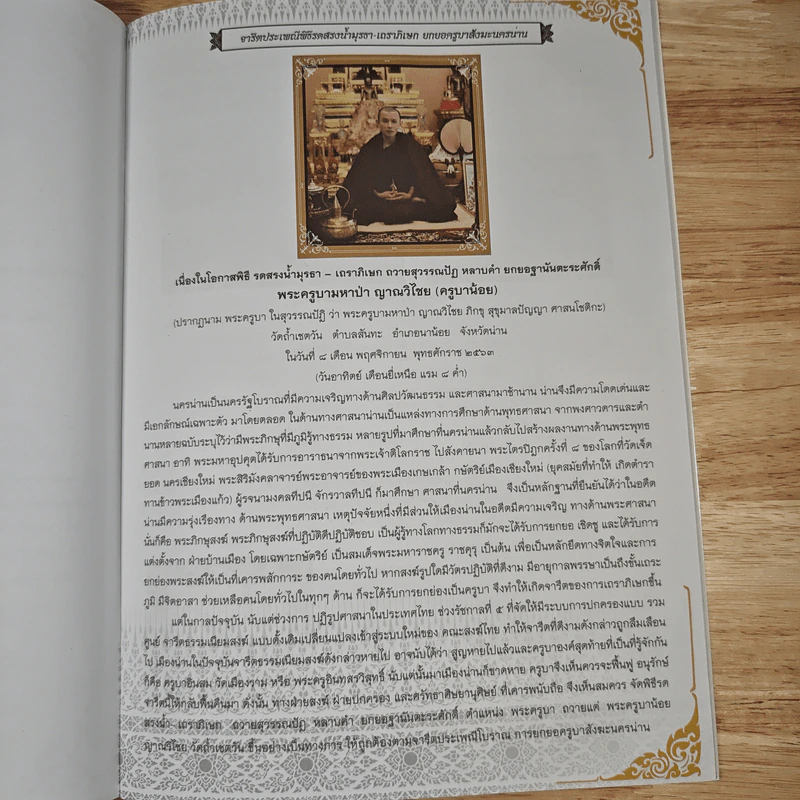 จารีตประเพณีพิธีรดสรงน้ำมุรธา-เถราภิเษก ยกยอครูบาสังฆะนครน่าน
เนื่องในโอกาสพิธี รดสรงน้ำมุรธา – เถราภิเษก ถวายสุวรรณปัฏ หลาบคำ ยกยอฐานันตะระศักดิ์
พระครูบามหาป่า ญาณวิไชย (ครูบาน้อย)
(ปรากฏนาม พระครูบา ในสุวรรณปัฏิ ว่า พระครูบามหาป่า ญาณวิไชย ภิกขุ สุขุมาลปัญญา ศาสนโชติกะ)
วัดถ้ำเชตวัน ตำบลสันทะ อำเภอนาน้อย จังหวัดน่าน
ในวันที่ ๘ เดือน พฤศจิกายน พุทธศักราช ๒๕๖๓
(วันอาทิตย์ เดือนยี่เหนือ แรม ๘ ค่ำ)
นครน่านเป็นนครรัฐโบราณที่มีความเจริญทางด้านศิลปวัฒนธรรม และศาสนามาช้านาน น่านจึงมีความโดดเด่นและ
มีเอกลักษณ์เฉพาะตัว มาโดยตลอด ในด้านทางศาสนาน่านเป็นแหล่งทางการศึกษาด้านพุทธศาสนา จากพงศาวดารและตำ
นานหลายฉบับระบุไว้ว่ามีพระภิกษุที่มีภูมิรู้ทางธรรม หลายรูปที่มาศึกษาที่นครน่านแล้วกลับไปสร้างผลงานทางด้านพระพุทธ
ศาสนา อาทิ พระมหาอุปคุตได้รับการอาราธนาจากพระเจ้าติโลกราช ไปสังคายนา พระไตรปิฎกครั้งที่ ๘ ของโลกที่วัดเจ็ด
ยอด นครเชียงใหม่ พระสิริมังคลาจารย์พระอาจารย์ของพระเมืองเกษเกล้า กษัตริย์เมืองเชียงใหม่ (ยุคสมัยที่ทำให้ เกิดตำรา
ทานข้าวพระเมืองแก้ว) ผู้รจนามงคลทีปนี จักรวาลทีปนี ก็มาศึกษา ศาสนาที่นครน่าน จึงเป็นหลักฐานที่ยืนยันได้ว่าในอดีต
น่านมีความรุ่งเรืองทาง ด้านพระพุทธศาสนา เหตุปัจจัยหนึ่งที่มีส่วนให้เมืองน่านในอดีตมีความเจริญ ทางด้านพระศาสนา
นั่นก็คือ พระภิกษุสงฆ์ พระภิกษุสงฆ์ที่ปฏิบัติดีปฏิบัติชอบ เป็นผู้รู้ทางโลกทางธรรมก็มักจะได้รับการยกยอ เชิดชู และได้รับการ
แต่งตั้งจาก ฝ่ายบ้านเมือง โดยเฉพาะกษัตริย์ เป็นสมเด็จพระมหาราชครู ราชครู เป็นต้น เพื่อเป็นหลักยึดทางจิตใจและการ
ยกย่องพระสงฆ์ให้เป็นที่เคารพสักการะ ของคนโดยทั่วไป หากสงฆ์รูปใดมีวัตรปฏิบัติที่ดีงาม มีอายุกาลพรรษาเป็นถึงขั้นเถระ
ภูมิ มีจิตอาสา ช่วยเหลือคนโดยทั่วไปในทุกๆ ด้าน ก็จะได้รับการยกย่องเป็นครูบา จึงทำให้เกิดจารีตของการเถราภิเษกขึ้น
แต่ในกาลปัจจุบัน นับแต่ช่วงการ ปฏิรูปศาสนาในประเทศไทย ช่วงรัชกาลที่ ๕ ที่จัดให้มีระบบการปกครองแบบ รวม
ศูนย์ จารีตธรรมเนียมสงฆ์ แบบดั้งเดิมเปลี่ยนแปลงเข้าสู่ระบบใหม่ของ คณะสงฆ์ไทย ทำให้จารีตที่ดีงามดังกล่าวถูกลืมเลือน
ไป เมืองน่านในปัจจุบันจารีตธรรมเนียมสงฆ์ดังกล่าวหายไป อาจนับได้ว่า สูญหายไปแล้วและครูบาองค์สุดท้ายที่เป็นที่รู้จักกัน
ก็คือ ครูบาอินสม วัดเมืองราม หรือ พระครูอินทสรวิสุทธิ์ นับแต่นั้นมาเมืองน่านก็ขาดหาย ครูบาจึงเห็นควรจะฟื้นฟู อนุรักษ์
จารีตนี้ให้กลับฟื้นคืนมา ดังนั้น ทางฝ่ายสงฆ์ ฝ่ายปกครอง และศรัทธาศิษยานุศิษย์ ที่เคารพนับถือ จึงเห็นสมควร จัดพิธีรด
สรงน้ำ เถราภิเษก ถวายสุวรรณปัฏ หลาบคำ ยกยอฐานันตะระศักดิ์ ตำแหน่ง พระครูบา ถวายแด่ พระครูบาน้อย
ญาณวิไชย วัดถ้ำเชตวัน ขึ้นอย่างเป็นทางการ ให้ถูกต้องตามจารีตประเพณีโบราณ การยกยอครูบาสังฆะนครน่าน